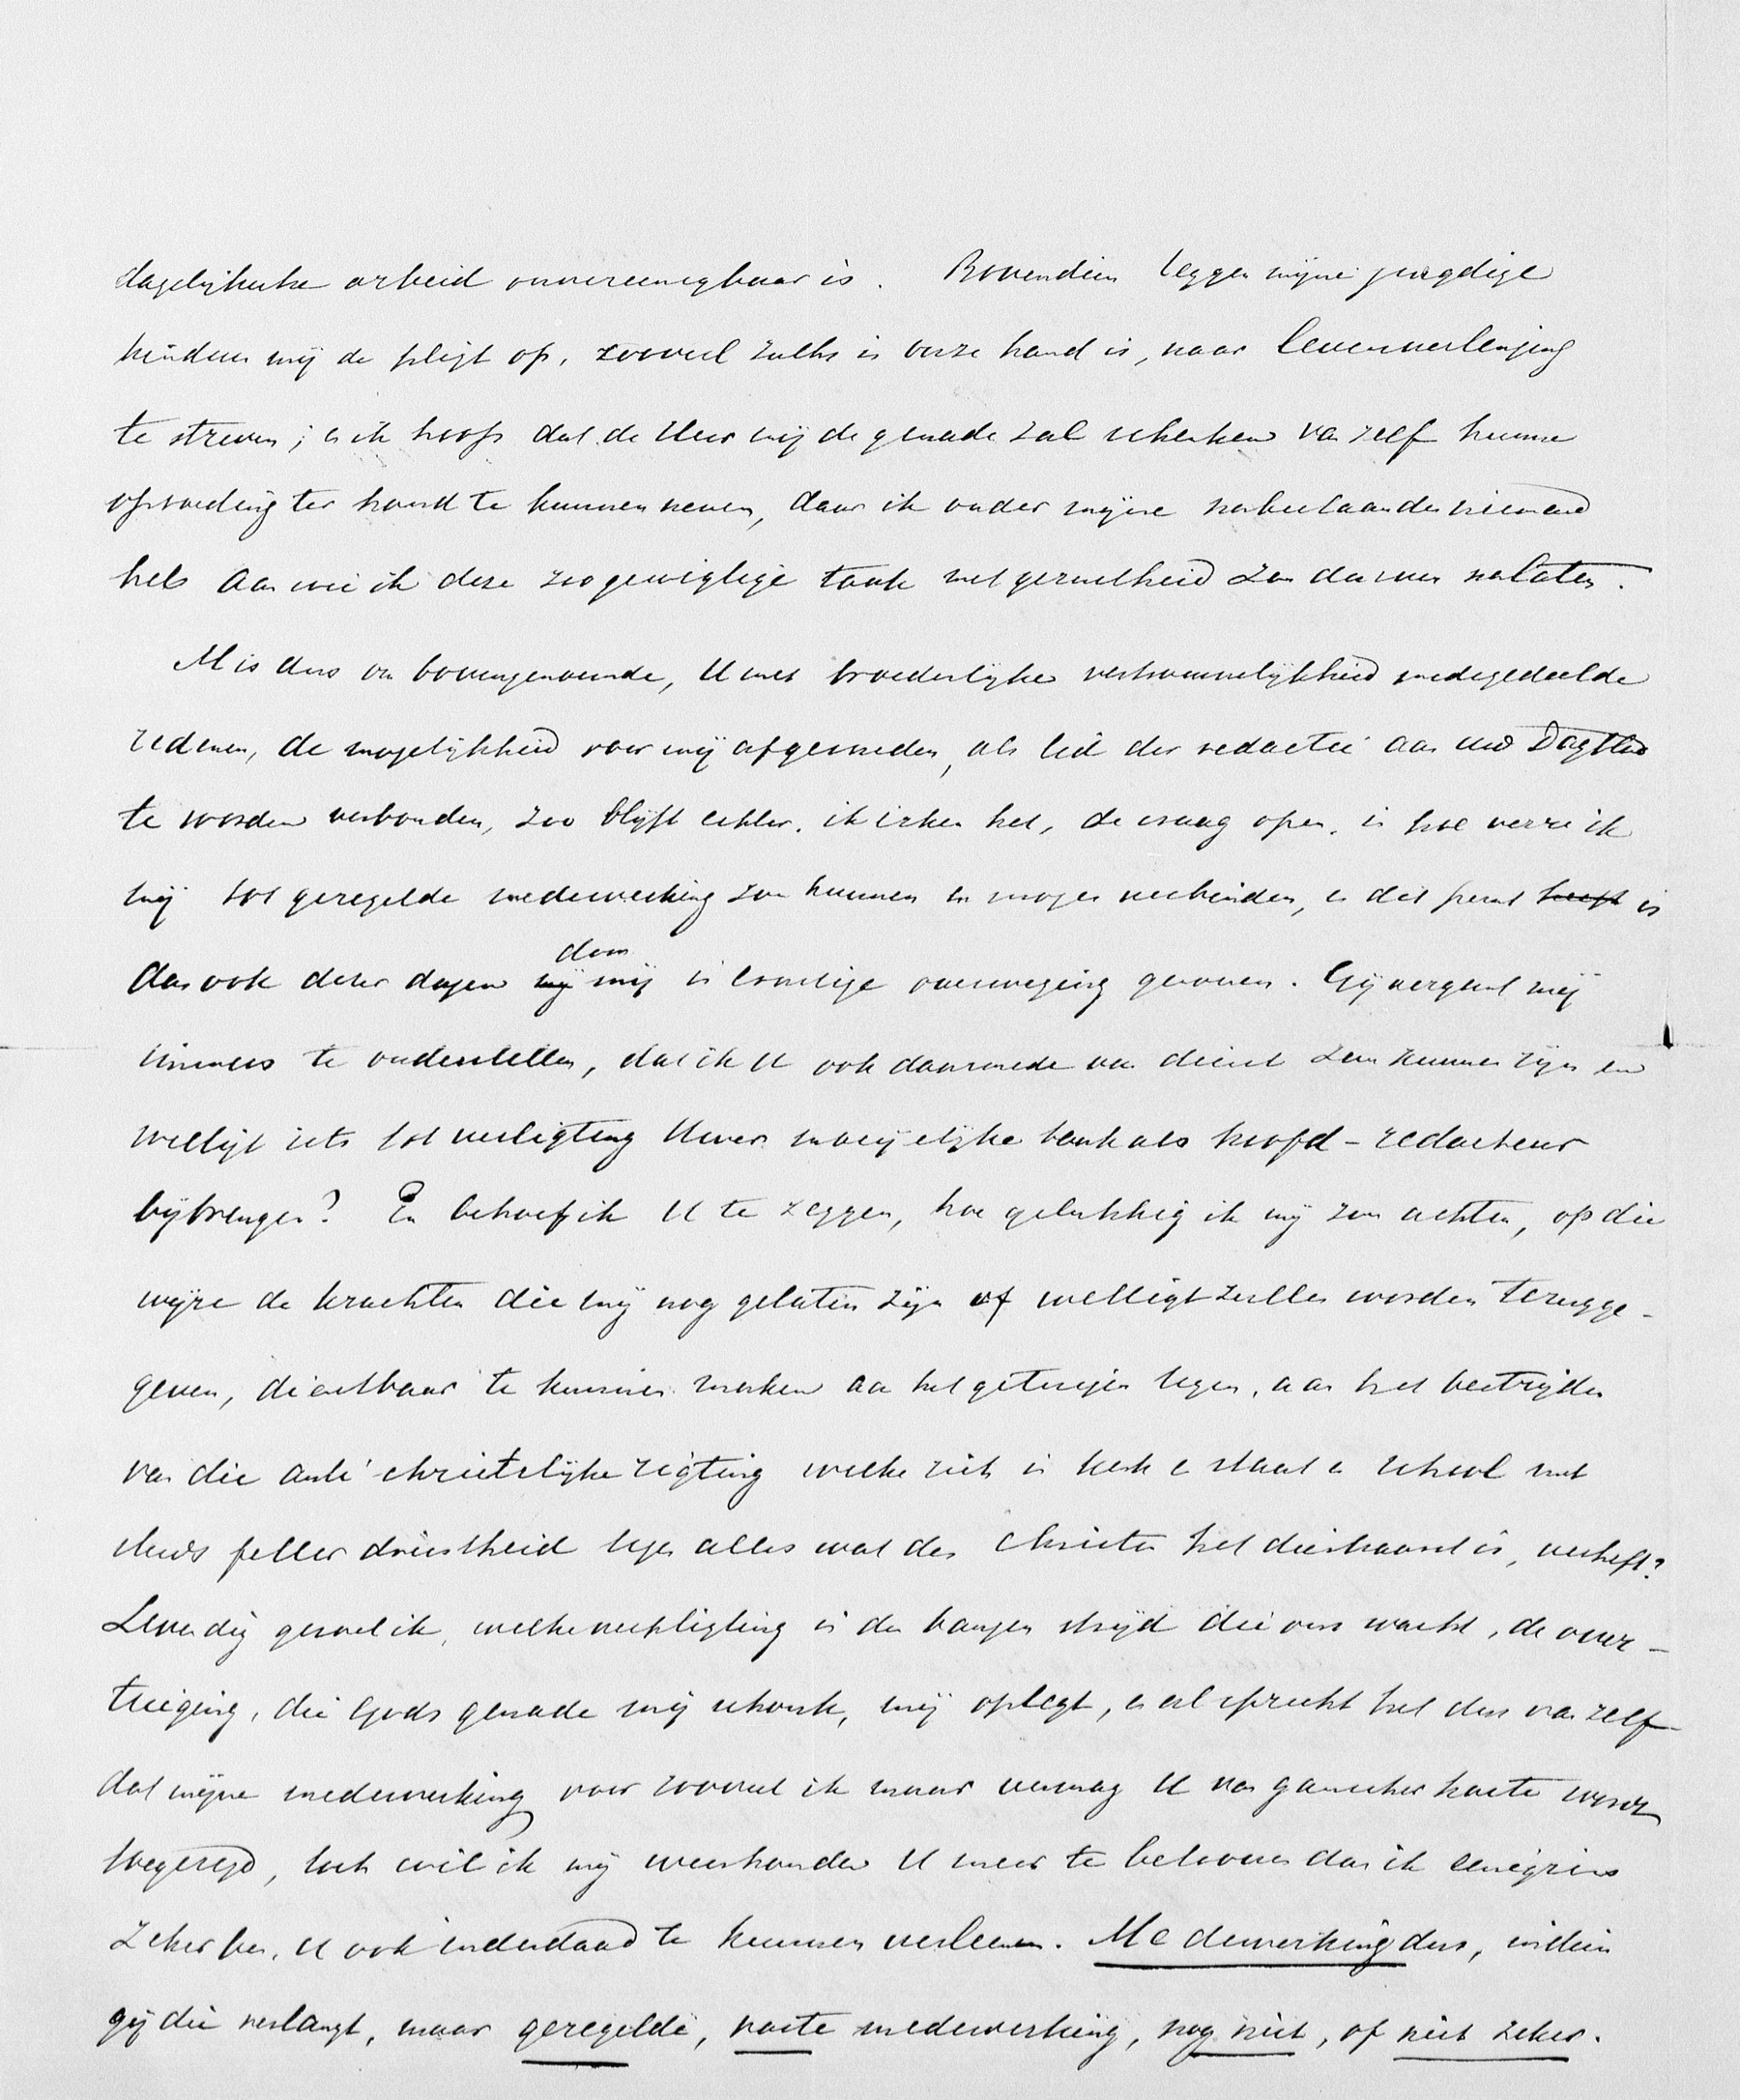 dagelijksche arbeid onvereenigbaar is. Bovendien leggen mijne jeugdige
kinderen mij de pligt op, zooveel zulks in onze hand is, naar levensverlenging
te streven; en ik hoop dat de Heer mij de genade zal schenken van zelf hunne
opvoeding ter hand te kunnen nemen, daar ik onder mijne nabestaanden niemand
heb aan wie ik deze zoo gewigtige taak met gerustheid zou durven nalaten.
Is dus om bovengenoemde, U met broederlijke vertrouwelijkheid medegedeelde
redenen, de mogelijkheid voor mij afgesneden, als lid der redactie aan uw Dagblad
te worden verbonden, zoo blijft echter, ik erken het, de vraag open, in hoe verre ik
mij tot geregelde medewerking zou kunnen en mogen verbinden, en dit punt ~~heeft~~ is
dan ook dezer dagen ~~mij~~ door mij in ernstige overweging genomen. Gij vergunt mij
immers te onderstellen, dat ik U ook daarmede van dienst zou kunnen zijn en
welligt iets tot verligting Uwer moeijelijke taak als hoofd-redacteur
bijbrengen? En behoef ik U te zeggen, hoe gelukkig ik mij zou achten, op die
wijze de krachten die mij nog gelaten zijn of welligt zullen worden terugge-
geven, dienstbaar te kunnen maken aan het getuigen tegen, aan het bestrijden
van die anti christelijke rigting welke zich in kerk en staat en school met
steeds feller driestheid tegen alles wat den Christen het dierbaarst is, verheft?
Levendig gevoel ik, welke verpligting in den bangen strijd die ons wacht, de over-
tuiging, die Gods genade mij schonk, mij oplegt, en al spreekt het dus van zelf
dat mijne medewerking voor zooveel ik maar vermag U van ganscher harte wordt
toegezegd, toch wil ik mij weerhouden U meer te beloven dan ik eenigzins
zeker ben, U ook inderdaad te kunnen verleenen. Medewerking dus, indien
gij die verlangt, maar geregelde, vaste medewerking, nog niet, of niet zeker.